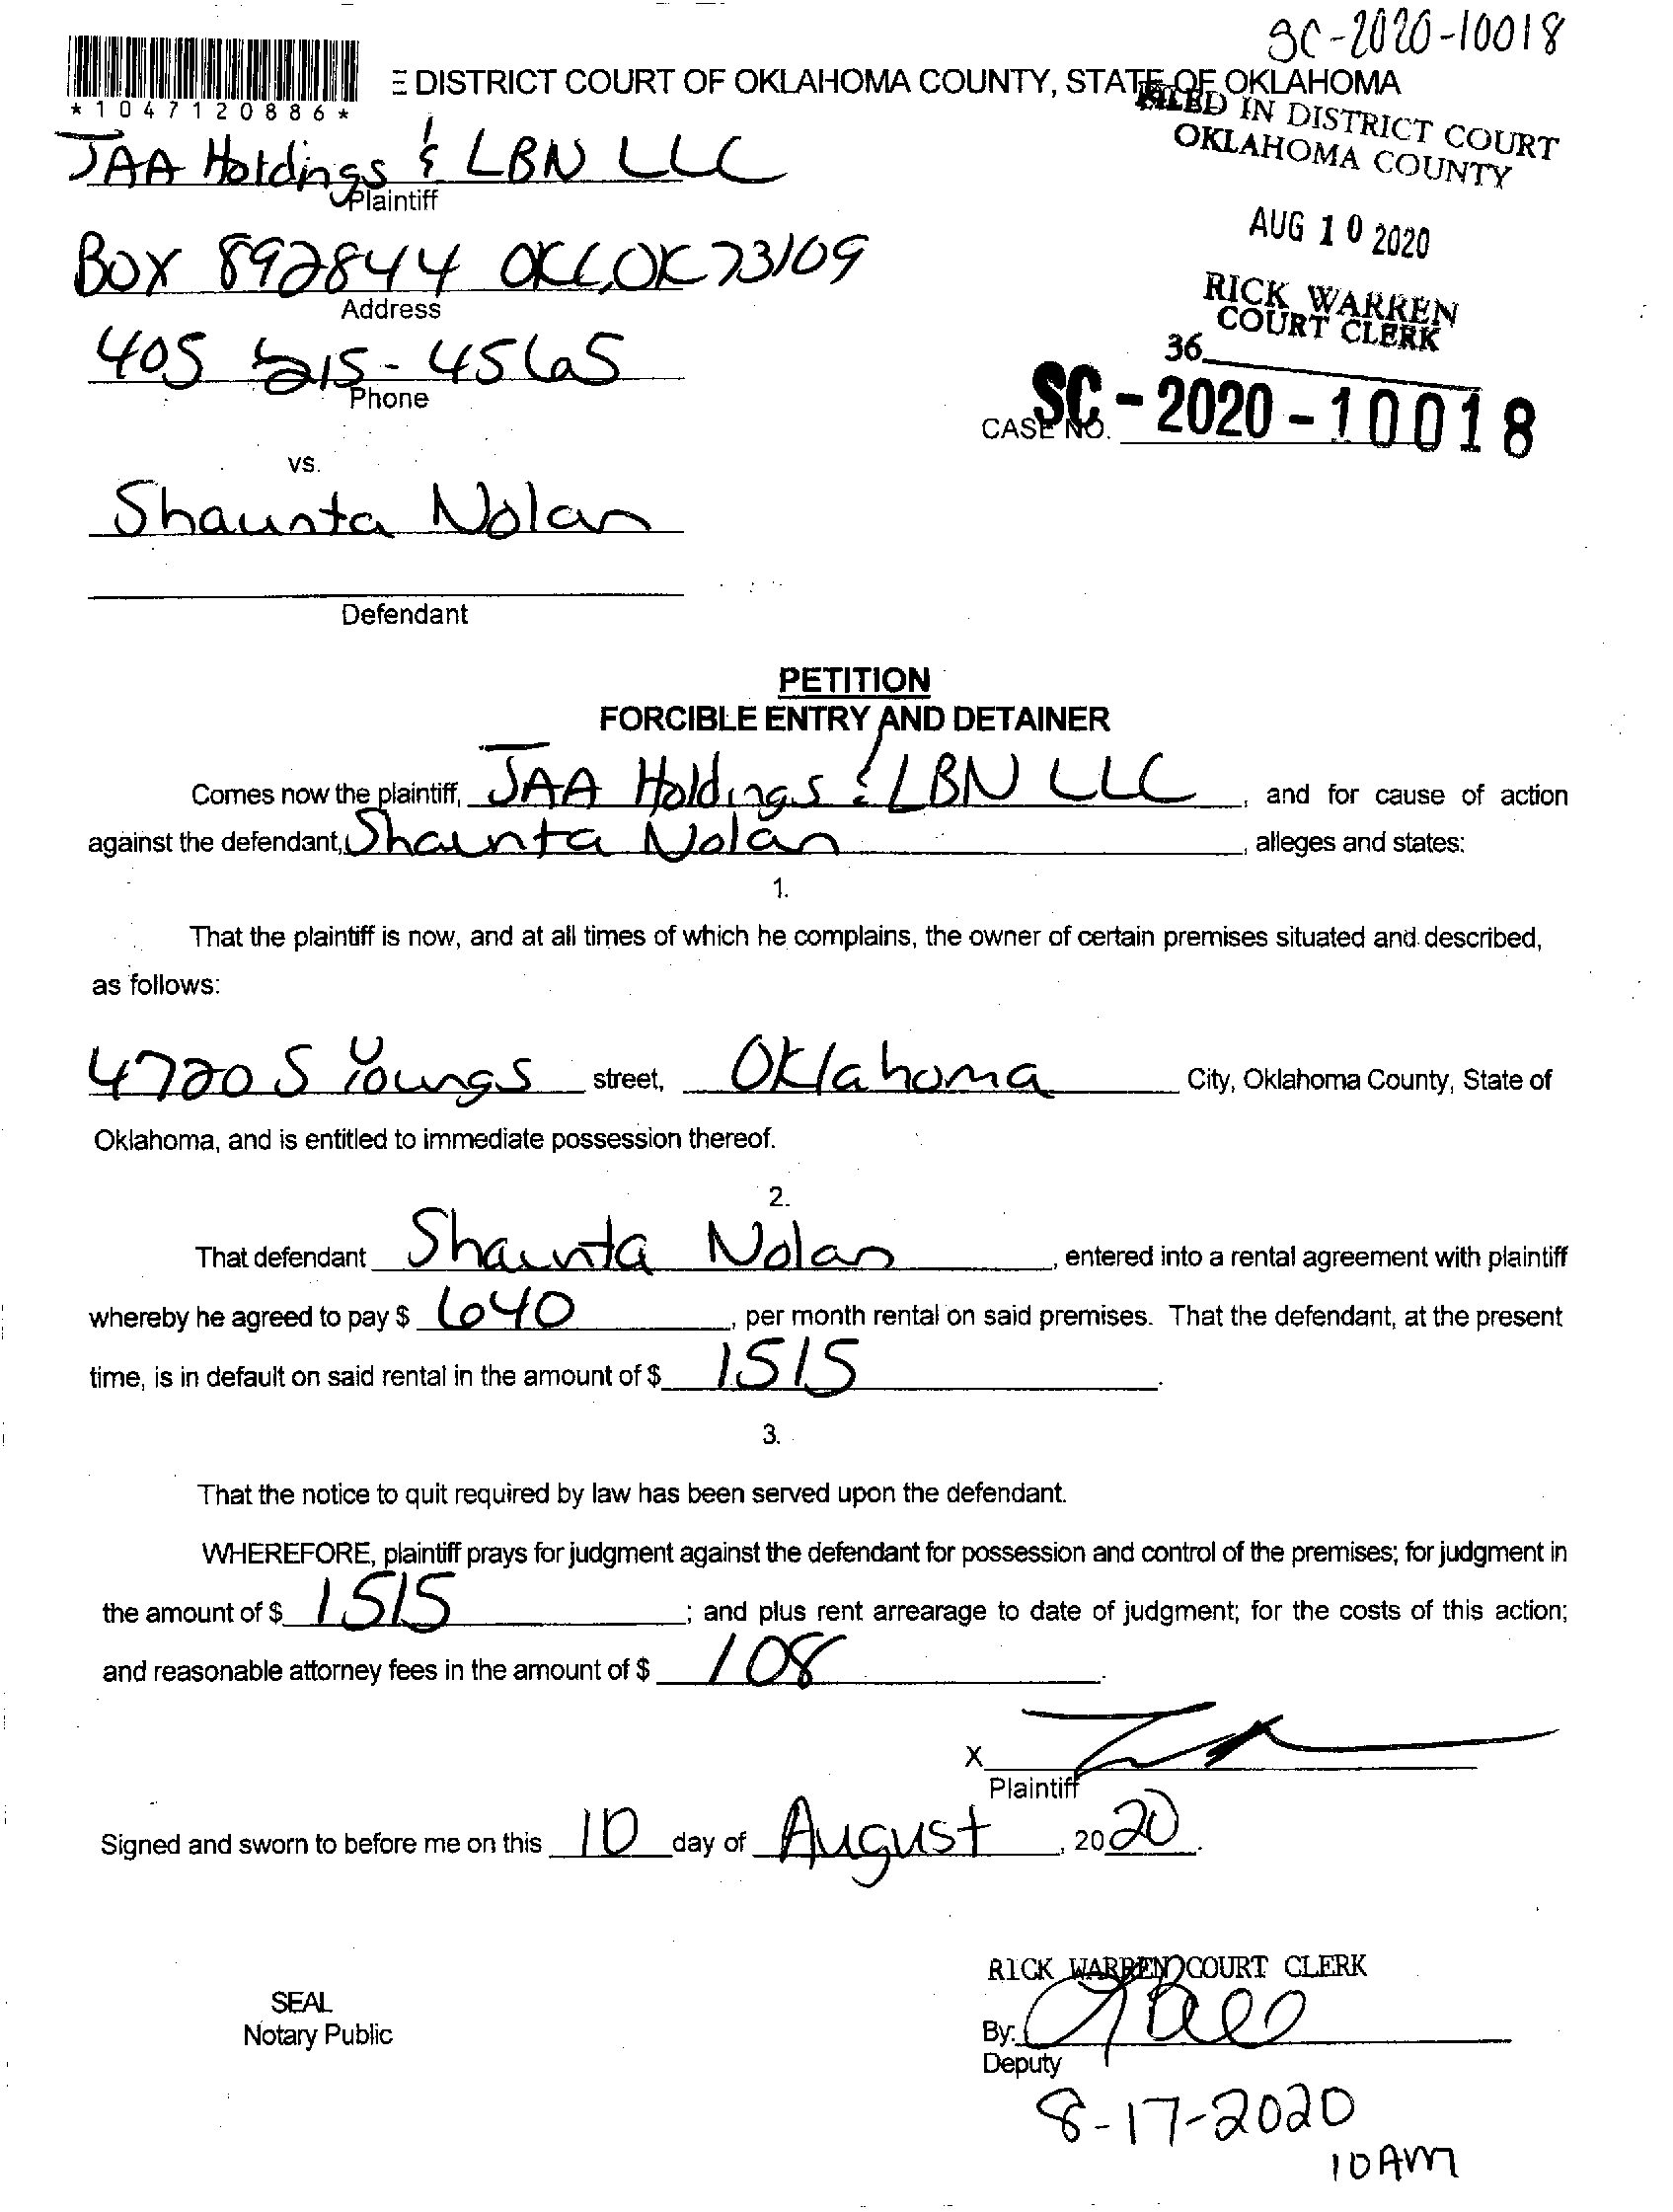 SC-2020-10018
E DISTRICT COURT OF OKLAHOMA COUNTY, STATE OF OKLAHOMA
*1047120886*
FILED IN DISTRICT COURT
OKLAHOMA COUNTY
JAA Holdings & LBN LLC
Plaintiff
AUG 10 2020
Box 892844 OKC, OK 73109
Address
RICK WARREN
COURT CLERK
405 215-4565
Phone
36
CASE NO. SC-2020-10018
vs.
Shaunta Nolan
Defendant
PETITION
FORCIBLE ENTRY AND DETAINER
Comes now the plaintiff, JAA Holdings & LBN LLC, and for cause of action
against the defendant, Shaunta Nolan, alleges and states:
1.
That the plaintiff is now, and at all times of which he complains, the owner of certain premises situated and described,
as follows:
4720 S Youngs street, Oklahoma City, Oklahoma County, State of
Oklahoma, and is entitled to immediate possession thereof.
2.
That defendant Shaunta Nolan, entered into a rental agreement with plaintiff
whereby he agreed to pay $ 640, per month rental on said premises. That the defendant, at the present
time, is in default on said rental in the amount of $ 1515.
3.
That the notice to quit required by law has been served upon the defendant.
WHEREFORE, plaintiff prays for judgment against the defendant for possession and control of the premises; for judgment in
the amount of $ 1515; and plus rent arrearage to date of judgment; for the costs of this action;
and reasonable attorney fees in the amount of $ 108.
X
Plaintiff
Signed and sworn to before me on this 10 day of August, 2020.
RICK WARREN COURT CLERK
SEAL
Notary Public
By:
Deputy
8-17-2020
10AM